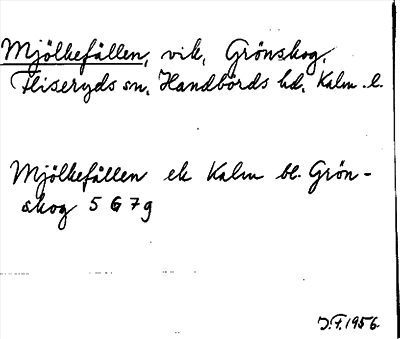 Mjölkefållen, vik, Grönskog,
Fliseryds sn, Handbörds hd. Kalm. l.
Mjölkefållen ek Kalm bl. Grön-
skog 5 G 7 g
J.F. 1956.